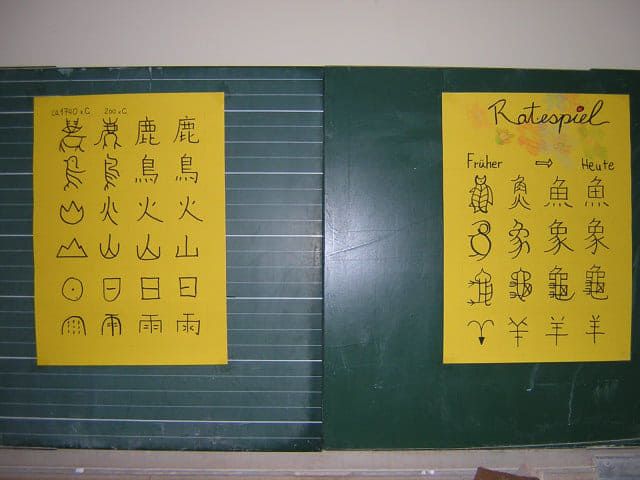 ca. 1740 v. C 200 v. C
鹿 鹿
鳥 鳥
火 火 火
山 山 山
日 日 日
雨 雨 雨
Ratespiel
Früher ⇨ Heute
魚 魚 魚
象 象 象
龜 龜 龜
羊 羊 羊